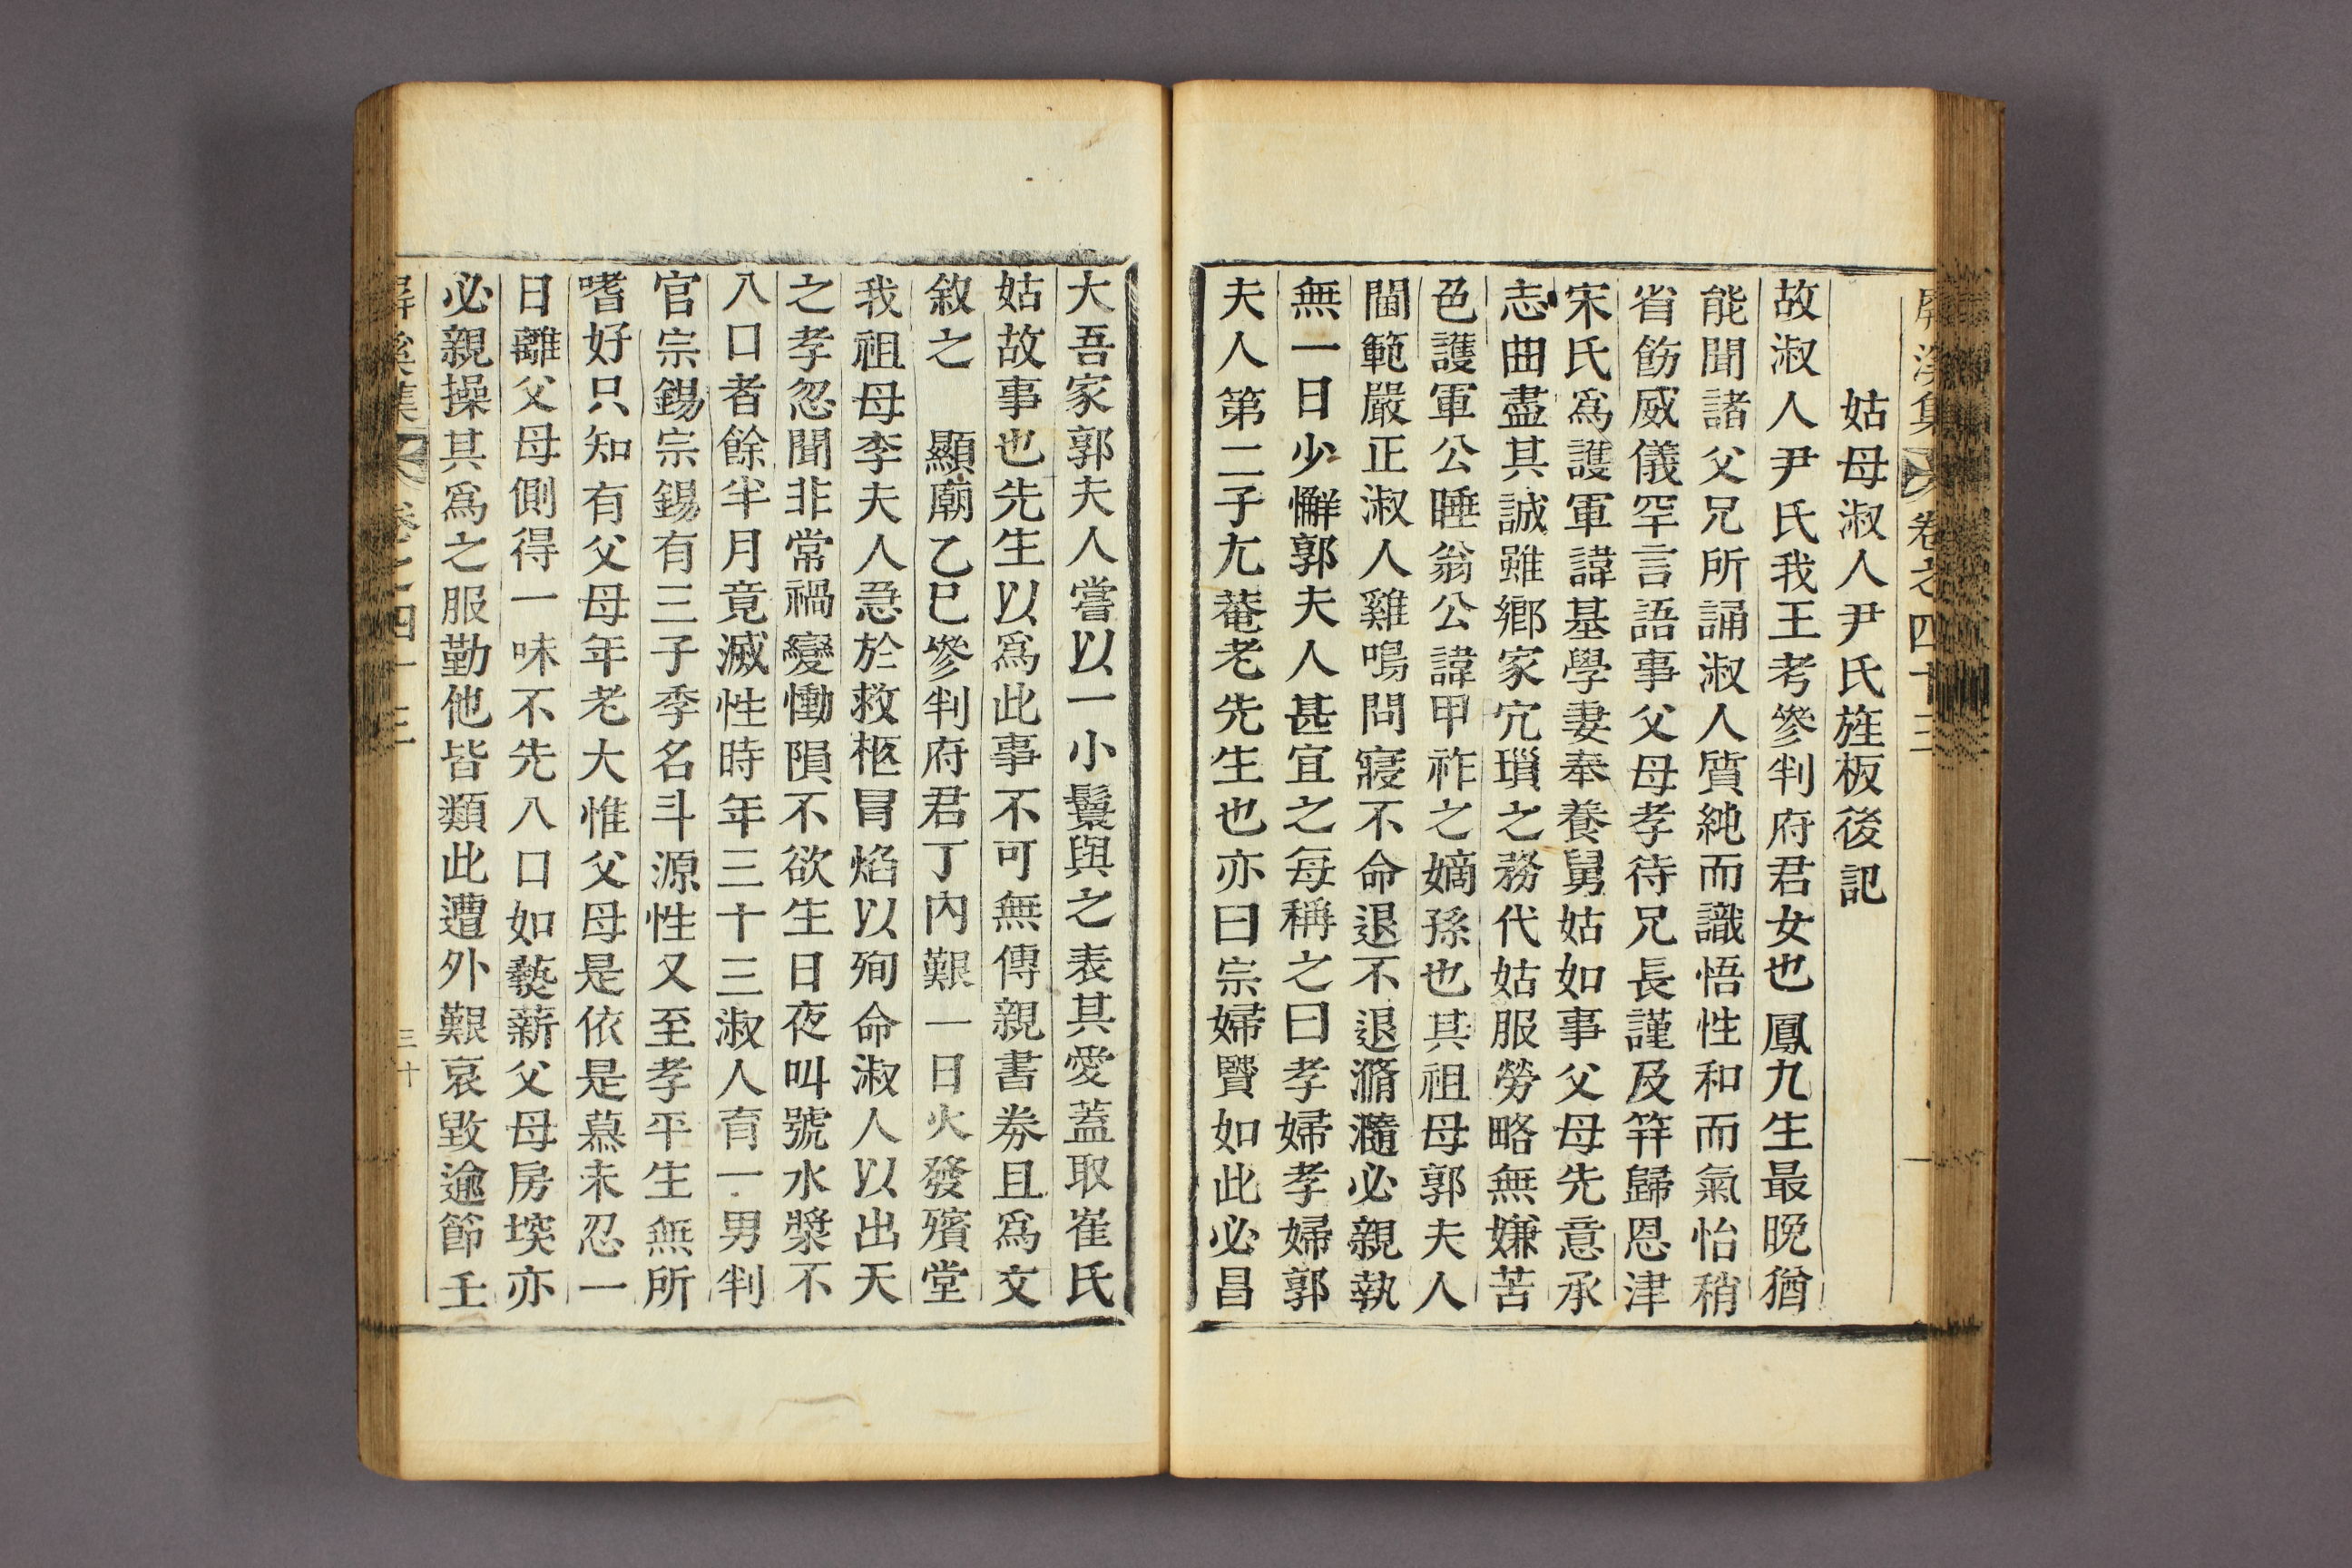 屛溪集 卷之四十三
姑母淑人尹氏旌板後記
故淑人尹氏我王考參判府君女也鳳九生最晚猶
能聞諸父兄所誦淑人質純而識悟性和而氣怡稍
省飭威儀罕言語事父母孝待兄長謹及筓歸恩津
宋氏爲護軍諱基學妻奉養舅姑如事父母先意承
志曲盡其誠雖鄕家宂瑣之務代姑服勞略無嫌苦
色護軍公睡翁公諱甲祚之嫡孫也其祖母郭夫人
閫範嚴正淑人雞鳴問寢不命退不退滫瀡必親執
無一日少懈郭夫人甚宜之每稱之曰孝婦孝婦郭
夫人第二子尤菴老先生也亦曰宗婦賢如此必昌
大吾家郭夫人嘗以一小鬟與之表其愛蓋取崔氏
姑故事也先生以爲此事不可無傳親書券且爲文
敘之 顯廟乙巳參判府君丁內艱一日火發殯堂
我祖母李夫人急於救柩冒焰以殉命淑人以出天
之孝忽聞非常禍變慟隕不欲生日夜叫號水漿不
入口者餘半月竟滅性時年三十三淑人育一男判
官宗錫宗錫有三子季名斗源性又至孝平生無所
嗜好只知有父母年老大惟父母是依是慕未忍一
日離父母側得一味不先入口如爇薪父母房堗亦
必親操其爲之服勤他皆類此遭外艱哀毀逾節壬
屛溪集 卷之四十三 三十